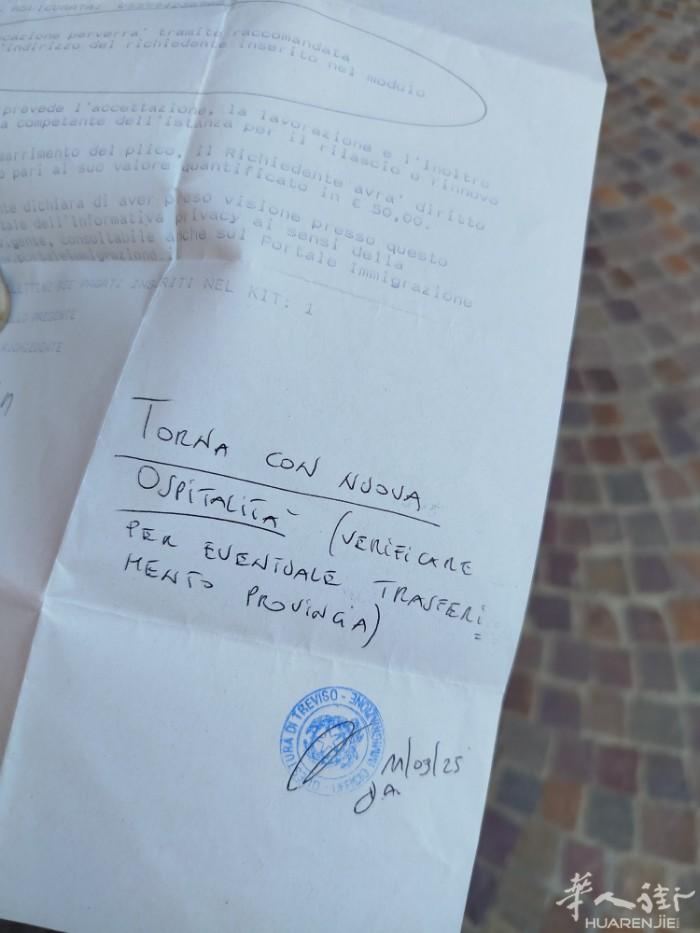 cazione perverra' tramite raccomandata
l'indirizzo del richiedente inserito nel modulo
prevede l'accettazione, la lavorazione e l'inoltro
a competente dell'istanza per il rilascio o rinnovo
smarrimento del plico, il Richiedente avra' diritto
o pari al suo valore quantificato in € 50,00.
nte dichiara di aver preso visione presso questo
tale dell'Informativa privacy ai sensi della
vigente, consultabile anche sul Portale Immigrazione
PAGATI INSERITI NEL KIT: 1
PRESENTE
RICHIEDENTE
TORNA CON NUOVA
OSPITALITA' (VERIFICARE
PER EVENTUALE TRASFERI
=
MENTO PROVINCIA)
TURA DI TREVISO - IMMIGRAZIONE
11/03/25
華人街
HUARENJIE